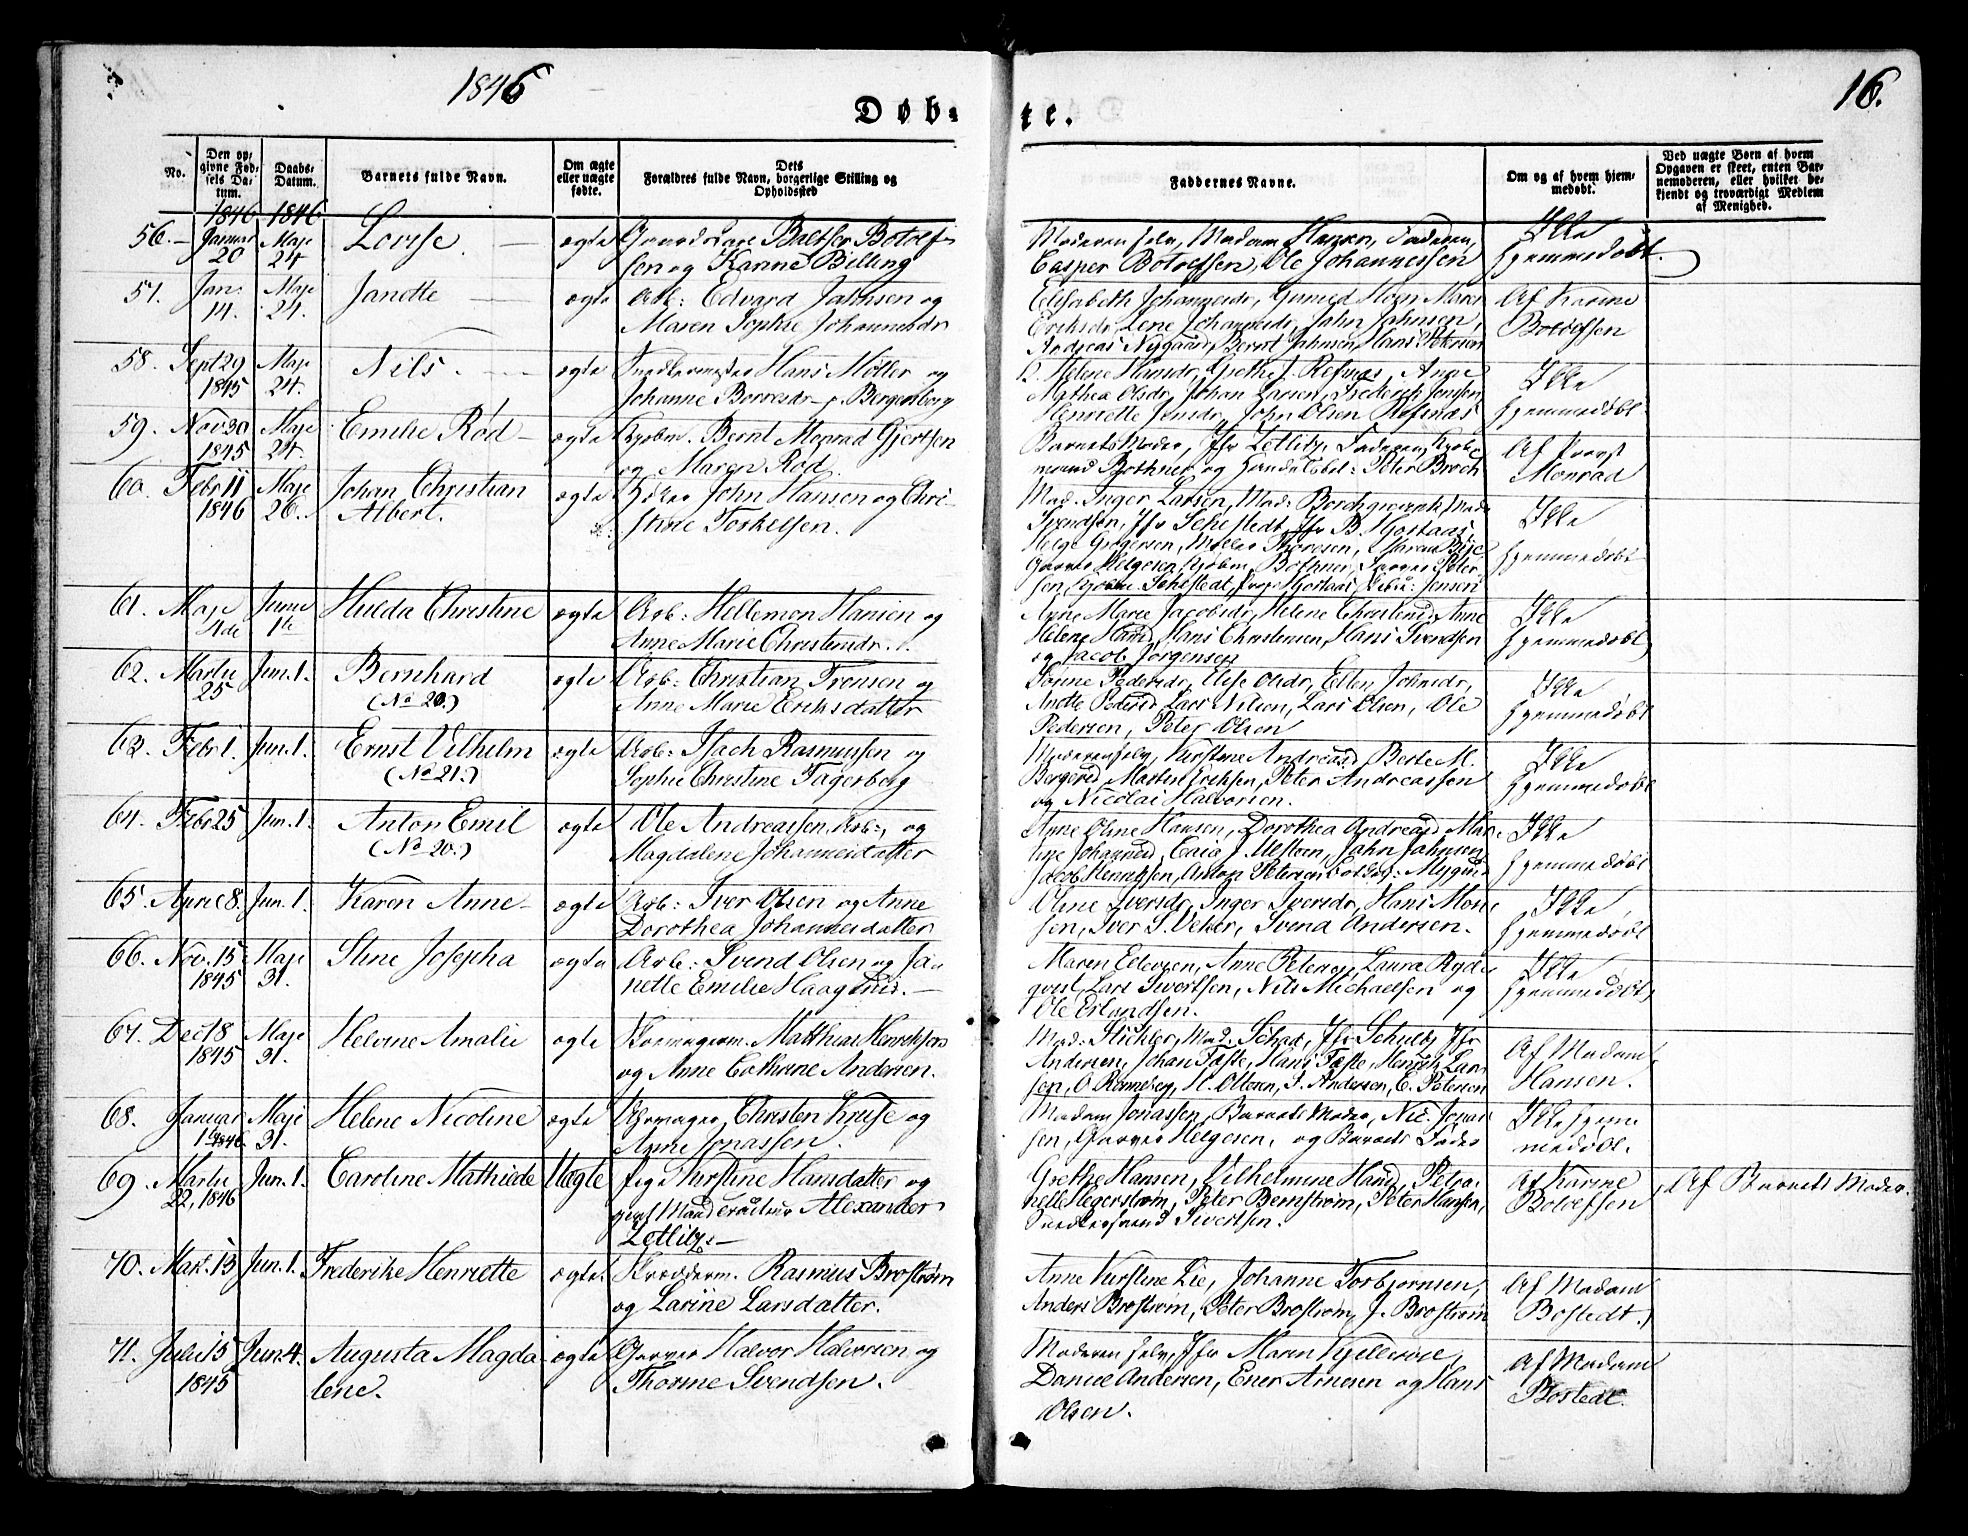 1846
16.
Døb-
te.
No.
Den op-
givne Fød-
sels Da-
tum.
Daabs-
Datum.
Barnets fulde Navn.
Om ægte
eller uægte
fødte.
Dets
Forældres fulde Navn, borgerlige Stilling og
Opholdssted
Faddernes Navne.
Om og af hvem hjem-
medøbt.
Ved uægte Børn af hvem
Opgaven er skeet, enten Bar-
nemoderen, eller hvilket be-
kjendt og troværdigt Medlem
af Menighed.
1846 1846
56. Januar 20 Maje 24. Lovise. ægte
sen og Karine Billing
Moderen selv, Madam Hansen, Faderen,
Casper Botolfsen, Ole Johannessen
Ikke
hjemmedøbt.
57. Jan. 14. Maje 24. Janette ægte Arb: Edvard Jahnsen og
Maren Sophie Johannesdr
Elisabeth Johannesdr, Maren
Eriksdr, Lene Johannesdr, Jahn Jahnsen,
Andreas Nygaard, Bernt Jahnsen, Hans Petersen
Af Karine
Botolfsen
58. Sept 29 1845 Maje 24. Nils. ægte Snedkermester Hans Möller og
Johanne Borresdr
Helene Hansdr, Grethe J. Refnæs, Anne
Mathea Olsdr, Johan Larsen, Frederik Jensen
Henriette Jensdr, John Olsen Refnæs
Ikke
hjemmedøbt
59. Nov 30 1845 Maje 24. Emilie Rød ægte Kjøbm. Bernt Monrad Gjertsen
og Maren Rød.
Barnets Moder, Jfr Zetlitz, Faderen, Kjøb-
mand Bothner og Handelsbet: Peter Broch
Af Provst
Monrad
60. Febr 11 1846 Maje 26. Johan Christian
Albert.
ægte John Hansen og Chri-
stine Torkelsen.
Mad. Inger Larsen, Mad: Borchgrevink, Mad
Svendsen, Jfr Sehestedt, Jfr B. Hostaas
Garver Helgesen, Kjøbm. Bothner,
Ikke
hjemmedøbt
61. Maje 4de Junie 1te Hulda Christine ægte Arb: Hellemon Hansen og
Anne Marie Christensdr.
Anne Marie Jacobsdr, Helene Christensd, Anne
Helene Hansd, Hans Christensen, Hans Svendsen
og Jacob Jørgensen
Ikke
hjemmedøbt
62. Martii 25 Jun. 1. Bernhard
(No 20.)
ægte Arb: Christian Fronsen og
Anne Marie Eriksdatter
Tonne Pedersdr, Else Olsdr, Ellen Johnsdr,
Anette Pedersd, Lars Nilsen, Lars Olsen, Ole
Pedersen, Peter Olsen
Ikke
hjemmedøbt
62. Febr 1. Jun. 1. Ernst Vilhelm
(No 21.)
ægte Arb: Isach Rasmussen og
Sophie Christine Fagerberg
Moderen selv, Kirstine Andreasd, Berte M.
Bergersd, Martin Eriksen, Peter Andreassen
og Nicolai Halvorsen.
Ikke
hjemmedøbt
64. Febr 25 Jun. 1. Anton Emil
(No 20.)
ægte Ole Andreassen, Arb:, og
Magdalene Johannesdatter
Anne Oline Hansen, Dorothea Andreasd, Mar-
tine Johannesd, Jahn Jahnsen
Jacob Henriksen,
Ikke
hjemmedøbt
65. April 8. Jun. 1. Karen Anne ægte Arb: Iver Olsen og Anne
Dorothea Johannesdatter
Oline Iversdr, Inger Iversdr, Hans Mon-
sen, Iver S. Veker, Svend Andersen.
Ikke
hjemmedøbt
66. Nov. 15 1845 Maje 31. Stine Josepha ægte Arb: Svend Olsen og Ja-
nette Emilie Haagensd.
Maren Ellevsen, Anne Petersen, Laura Ryd-
qvist, Lars Sivertsen, Nils Michaelsen og
Ole Erlandsen.
Ikke
hjemmedøbt
67. Dec 18 1845 Maje 31. Helvine Amalie ægte Skomagerm. Matthias Henriksen
og Anne Cathrine Andersen.
Mad: Stichler, Mad. Schad, Jfr Schultz, Jfr
Andersen, Johan Tofte, Hans Tofte, Henrik Lar-
sen, O. Ranneberg, H. Ottesen, S. Andersen, C. Petersen
Af Madam
Hansen.
68. Januar 1 1846 Maje 31. Helene Nicoline ægte Uhrmager Christen Kruse og
Anne Jonassen.
Madam Jonassen, Barnets Moder, Nic: Jonas-
sen, Garver Helgesen, og Barnets Fader
Ikke hjem-
medøbt.
69. Martii 22, 1846 Jun. 1. Caroline Mathilde Uægte Pige Kirstine Hansdatter og
Alexander
Zetlitz.
Grethe Hansen, Vilhelmine Hansd, Petro-
nelle Hegerstrøm, Peter Bernstrøm, Peter Hansen,
Snedkersvend Sivertsen.
Af Karine
Botolfsen
Af Barnets Moder.
70. Mart. 15 Jun. 1. Frederike Henriette ægte. Skrædderm. Rasmus Brostrøm
og Larine Larsdatter.
Anne Kirstine Lie, Johanne Torbjørnsen,
Anders Brostrøm, Peter Brostrøm, J. Brostrøm
Af Madam
Bostedt.
71. Juli 15 1845 Jun. 4. Augusta Magda-
lene.
ægte Garver Halvor Halvorsen og
Thorine Svendsen.
Moderen selv, Jfr Maren Kjellevold,
Daniel Andersen, Ener Arnesen og Hans
Olsen.
Af Madam
Bostedt.